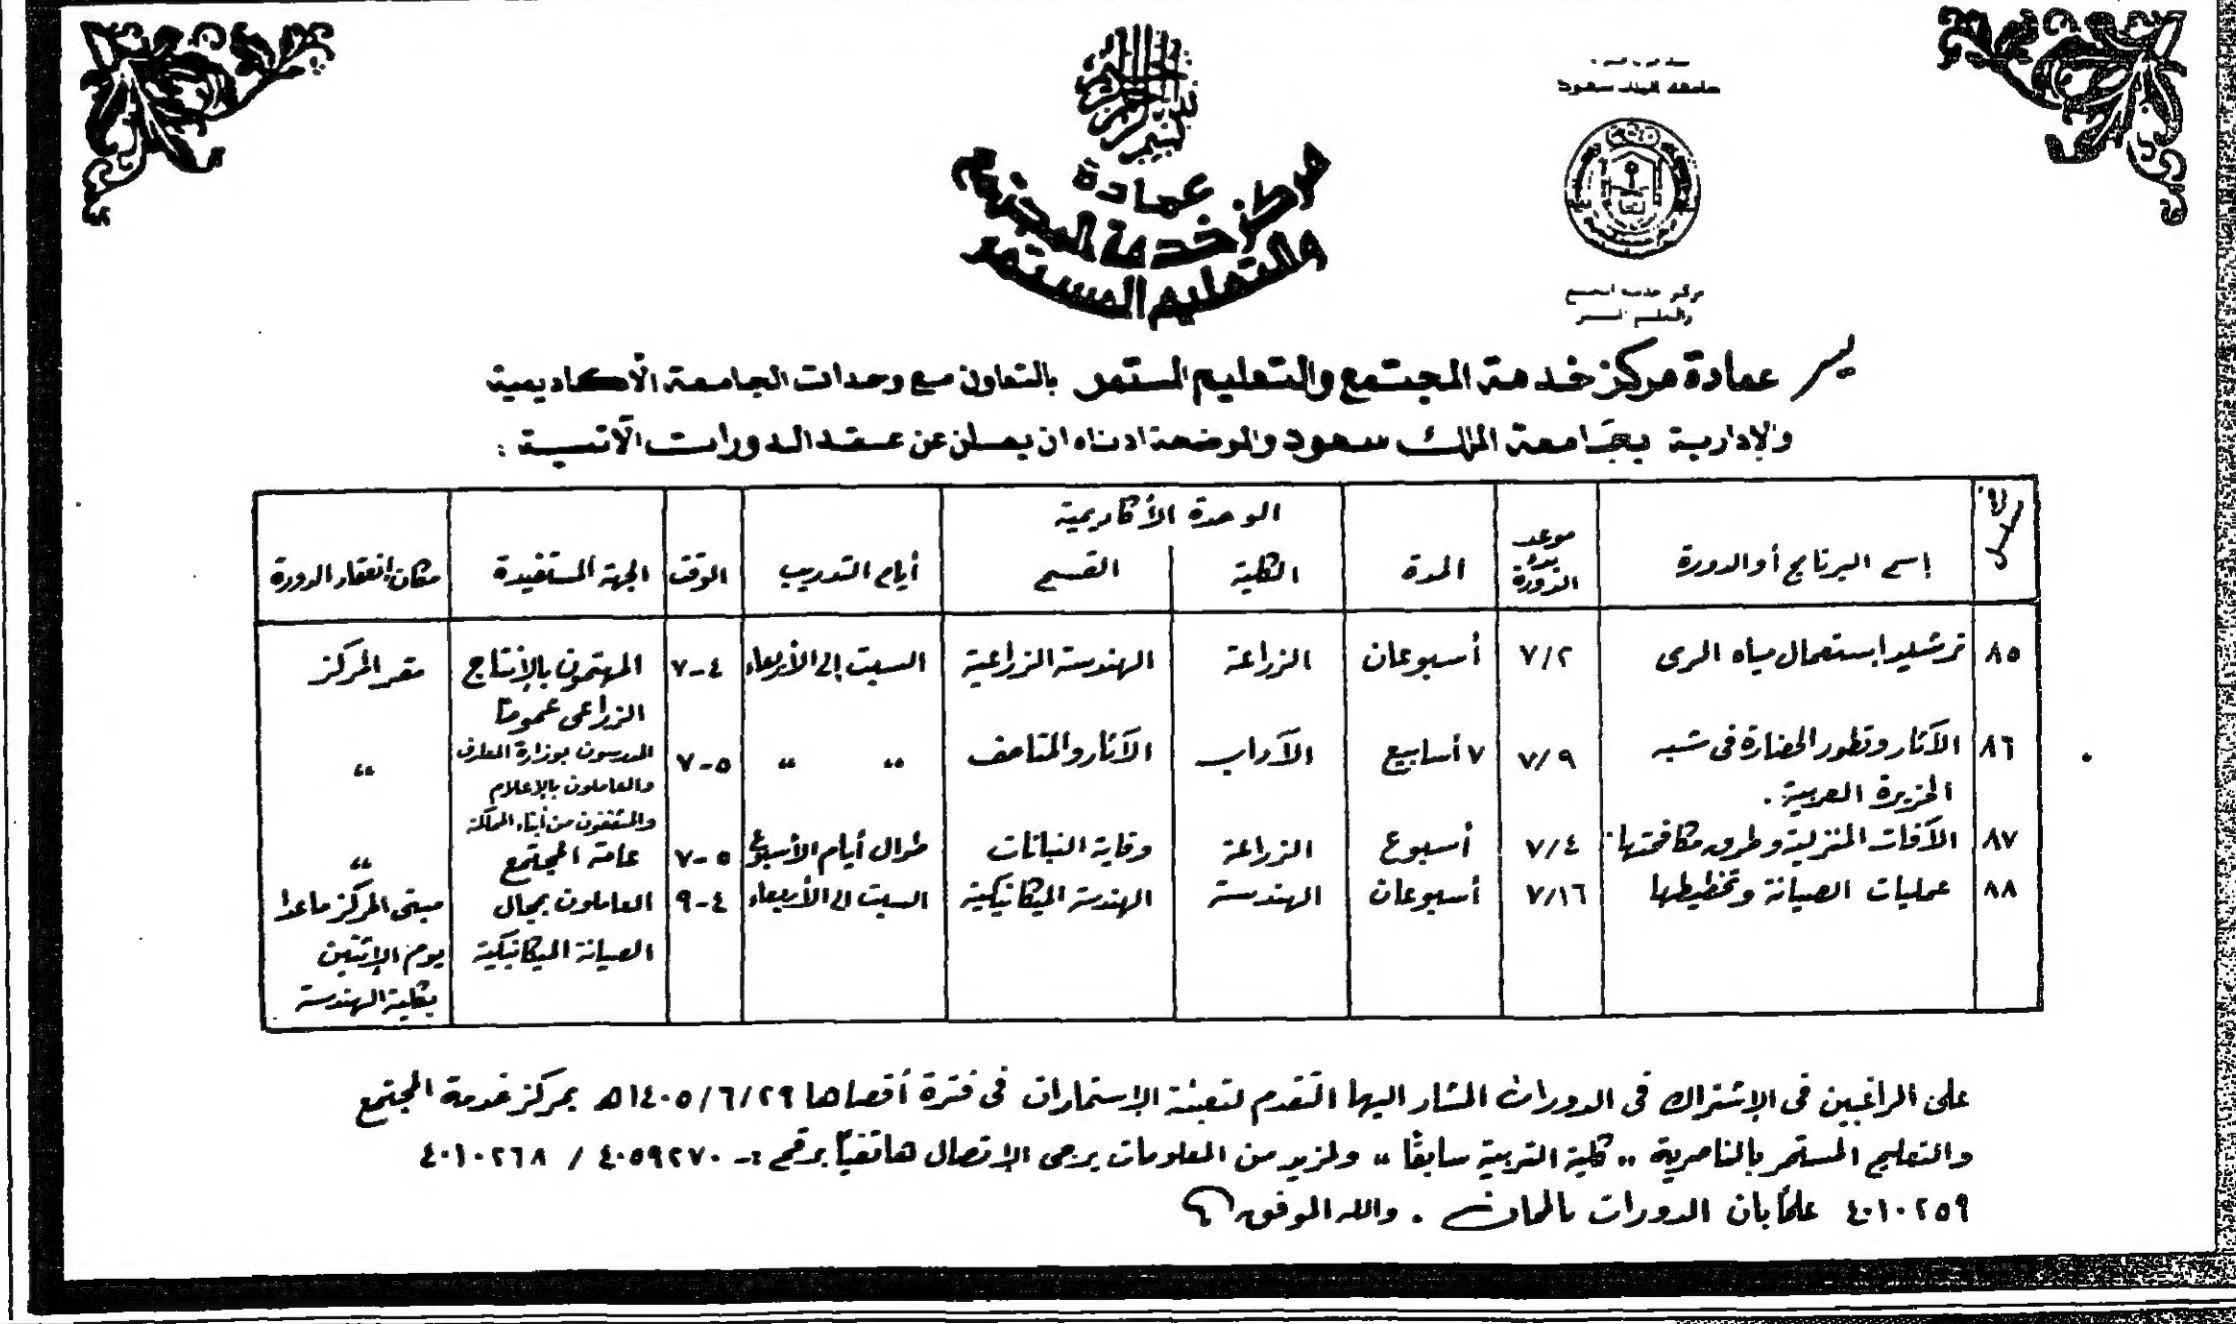 بسم الله الرحمن الرحيم
جامعة الملك سعود
عمادة
مركز خدمة المجتمع
والتعليم المستمر
مركز خدمة المجتمع
والتعليم المستمر
يسر عمادة مركز خدمة المجتمع والتعليم المستمر بالتعاون مع وحدات الجامعة الأكاديمية
والإدارية بجامعة الملك سعود والموضحة ادناه ان يعلن عن عقد الدورات الآتية :
إسم البرنامج أو الدورة
موعد بدء الدورة
المدة
الوحدة الأكاديمية
الكلية
القسم
أيام التدريب
الوقت
الجهة المستفيدة
مكان إنعقاد الدورة
٨٥ ترشيد إستعمال مياه الرى ٧/٢ أسبوعان الزراعة الهندسة الزراعية السبت إلى الأربعاء ٤-٧ المهتمون بالإنتاج مقر المركز
الزراعى عموما
٨٦ الآثار وتطور الحضارة فى شبه ٧/٩ ٧ أسابيع الآداب الآثار والمتاحف " " ٥-٧ المدرسون بوزارة المعارف "
الجزيرة العربية . والعاملون بالإعلام
والمثقفون من أبناء المملكة
٨٧ الآفات المنزلية وطرق مكافحتها ٧/٤ أسبوع الزراعة وقاية النباتات طوال أيام الأسبوع ٥-٧ عامة المجتمع "
٨٨ عمليات الصيانة وتخطيطها ٧/١٦ أسبوعان الهندسة الهندسة الميكانيكية السبت الى الأربعاء ٤-٩ العاملون بمجال مبنى المركز ماعدا
الصيانة الميكانيكية يوم الإثنين
بكلية الهندسة
على الراغبين فى الإشتراك فى الدورات المشار اليها التقدم لتعبئة الإستمارات فى فترة أقصاها ١٤٠٥/٦/٢٩هـ بمركز خدمة المجتمع
والتعليم المستمر بالناصرية " كلية التربية سابقًا " ولمزيد من المعلومات يرجى الإتصال هاتفيًا برقم :ـ ٤٠٥٩٢٧٠ / ٤٠١٠٢٦٨
٤٠١٠٢٥٩ علمًا بان الدورات بالمجان . والله الموفق